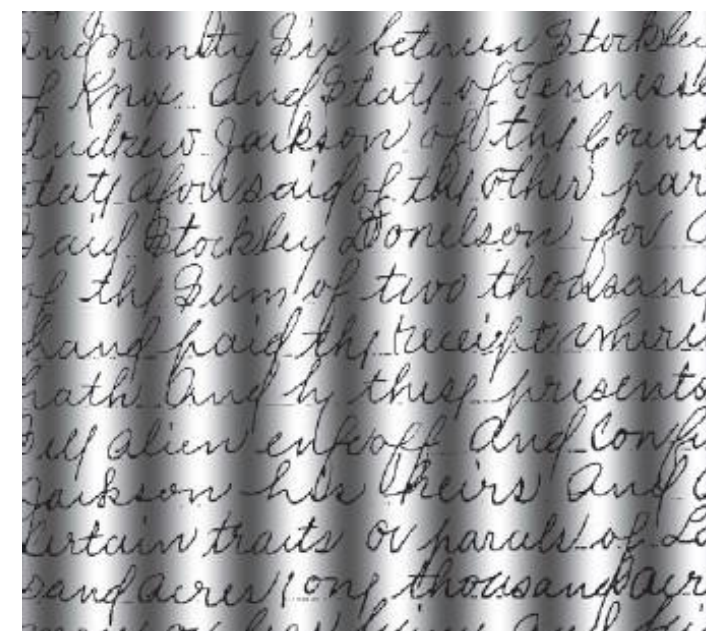 and Ninety Six between Stockley
of Knox and State of Tennesse
Andrew Jackson of the Count
tate aforesaid of the other par
Said Stockley Donelson for
of the Sum of two thousand
hand paid the receipt where
hath And by these presents
Sell alien enfeoff And Confi
Jackson his heirs And
Certain tracts or parcels of La
sand acres, one thousand acr